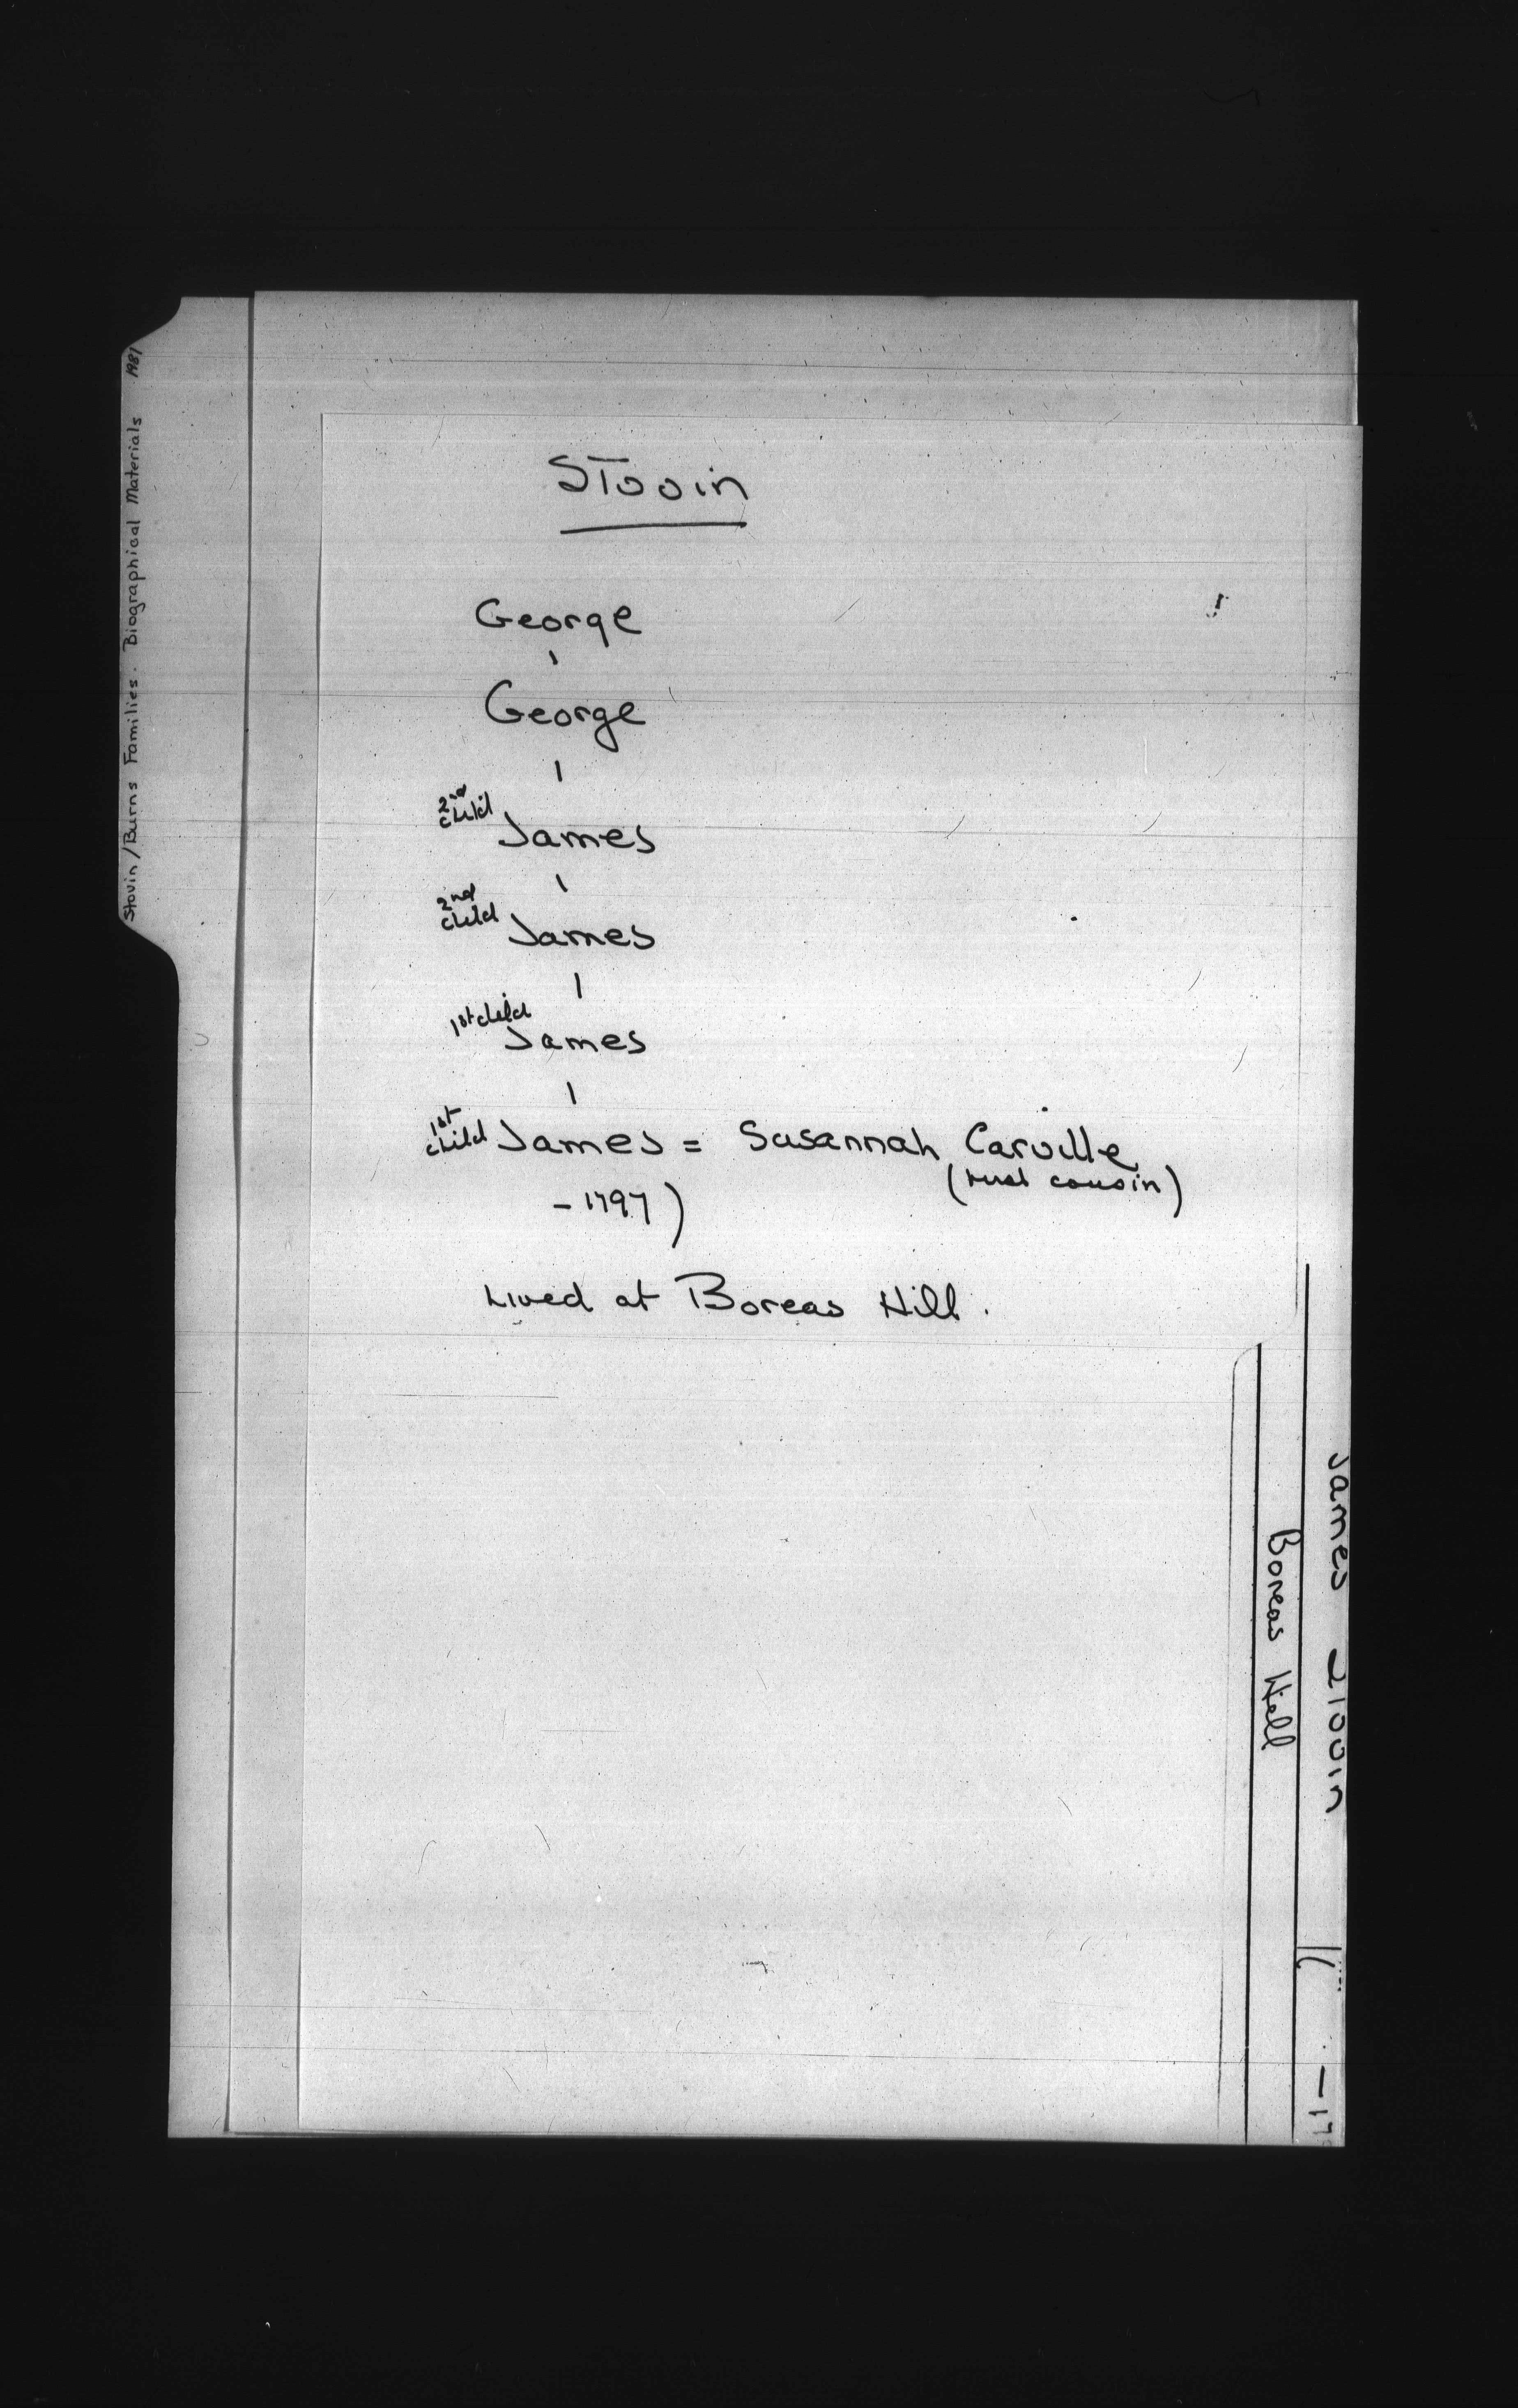 Stovin/Burns Families. Biographical Materials 1981
Stovin
George
George
2nd
child
James
2nd
child
James
1st child
James
1st
child James = Susannah Carville
(  cousin)
- 1797)
Lived at Boreas Hill.
James Stovin
Boreas Hill